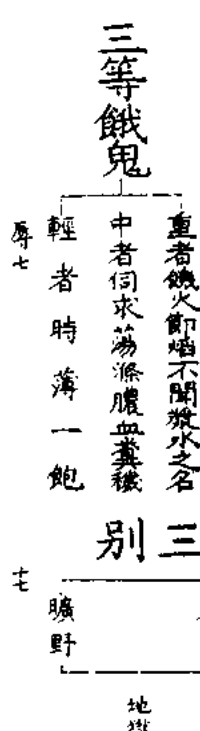 三等餓鬼
重者饑火節焰不聞漿水之名
中者伺求蕩滌膿血糞穢
輕者時薄一飽
辱七
三
別
曠野
十七
地獄